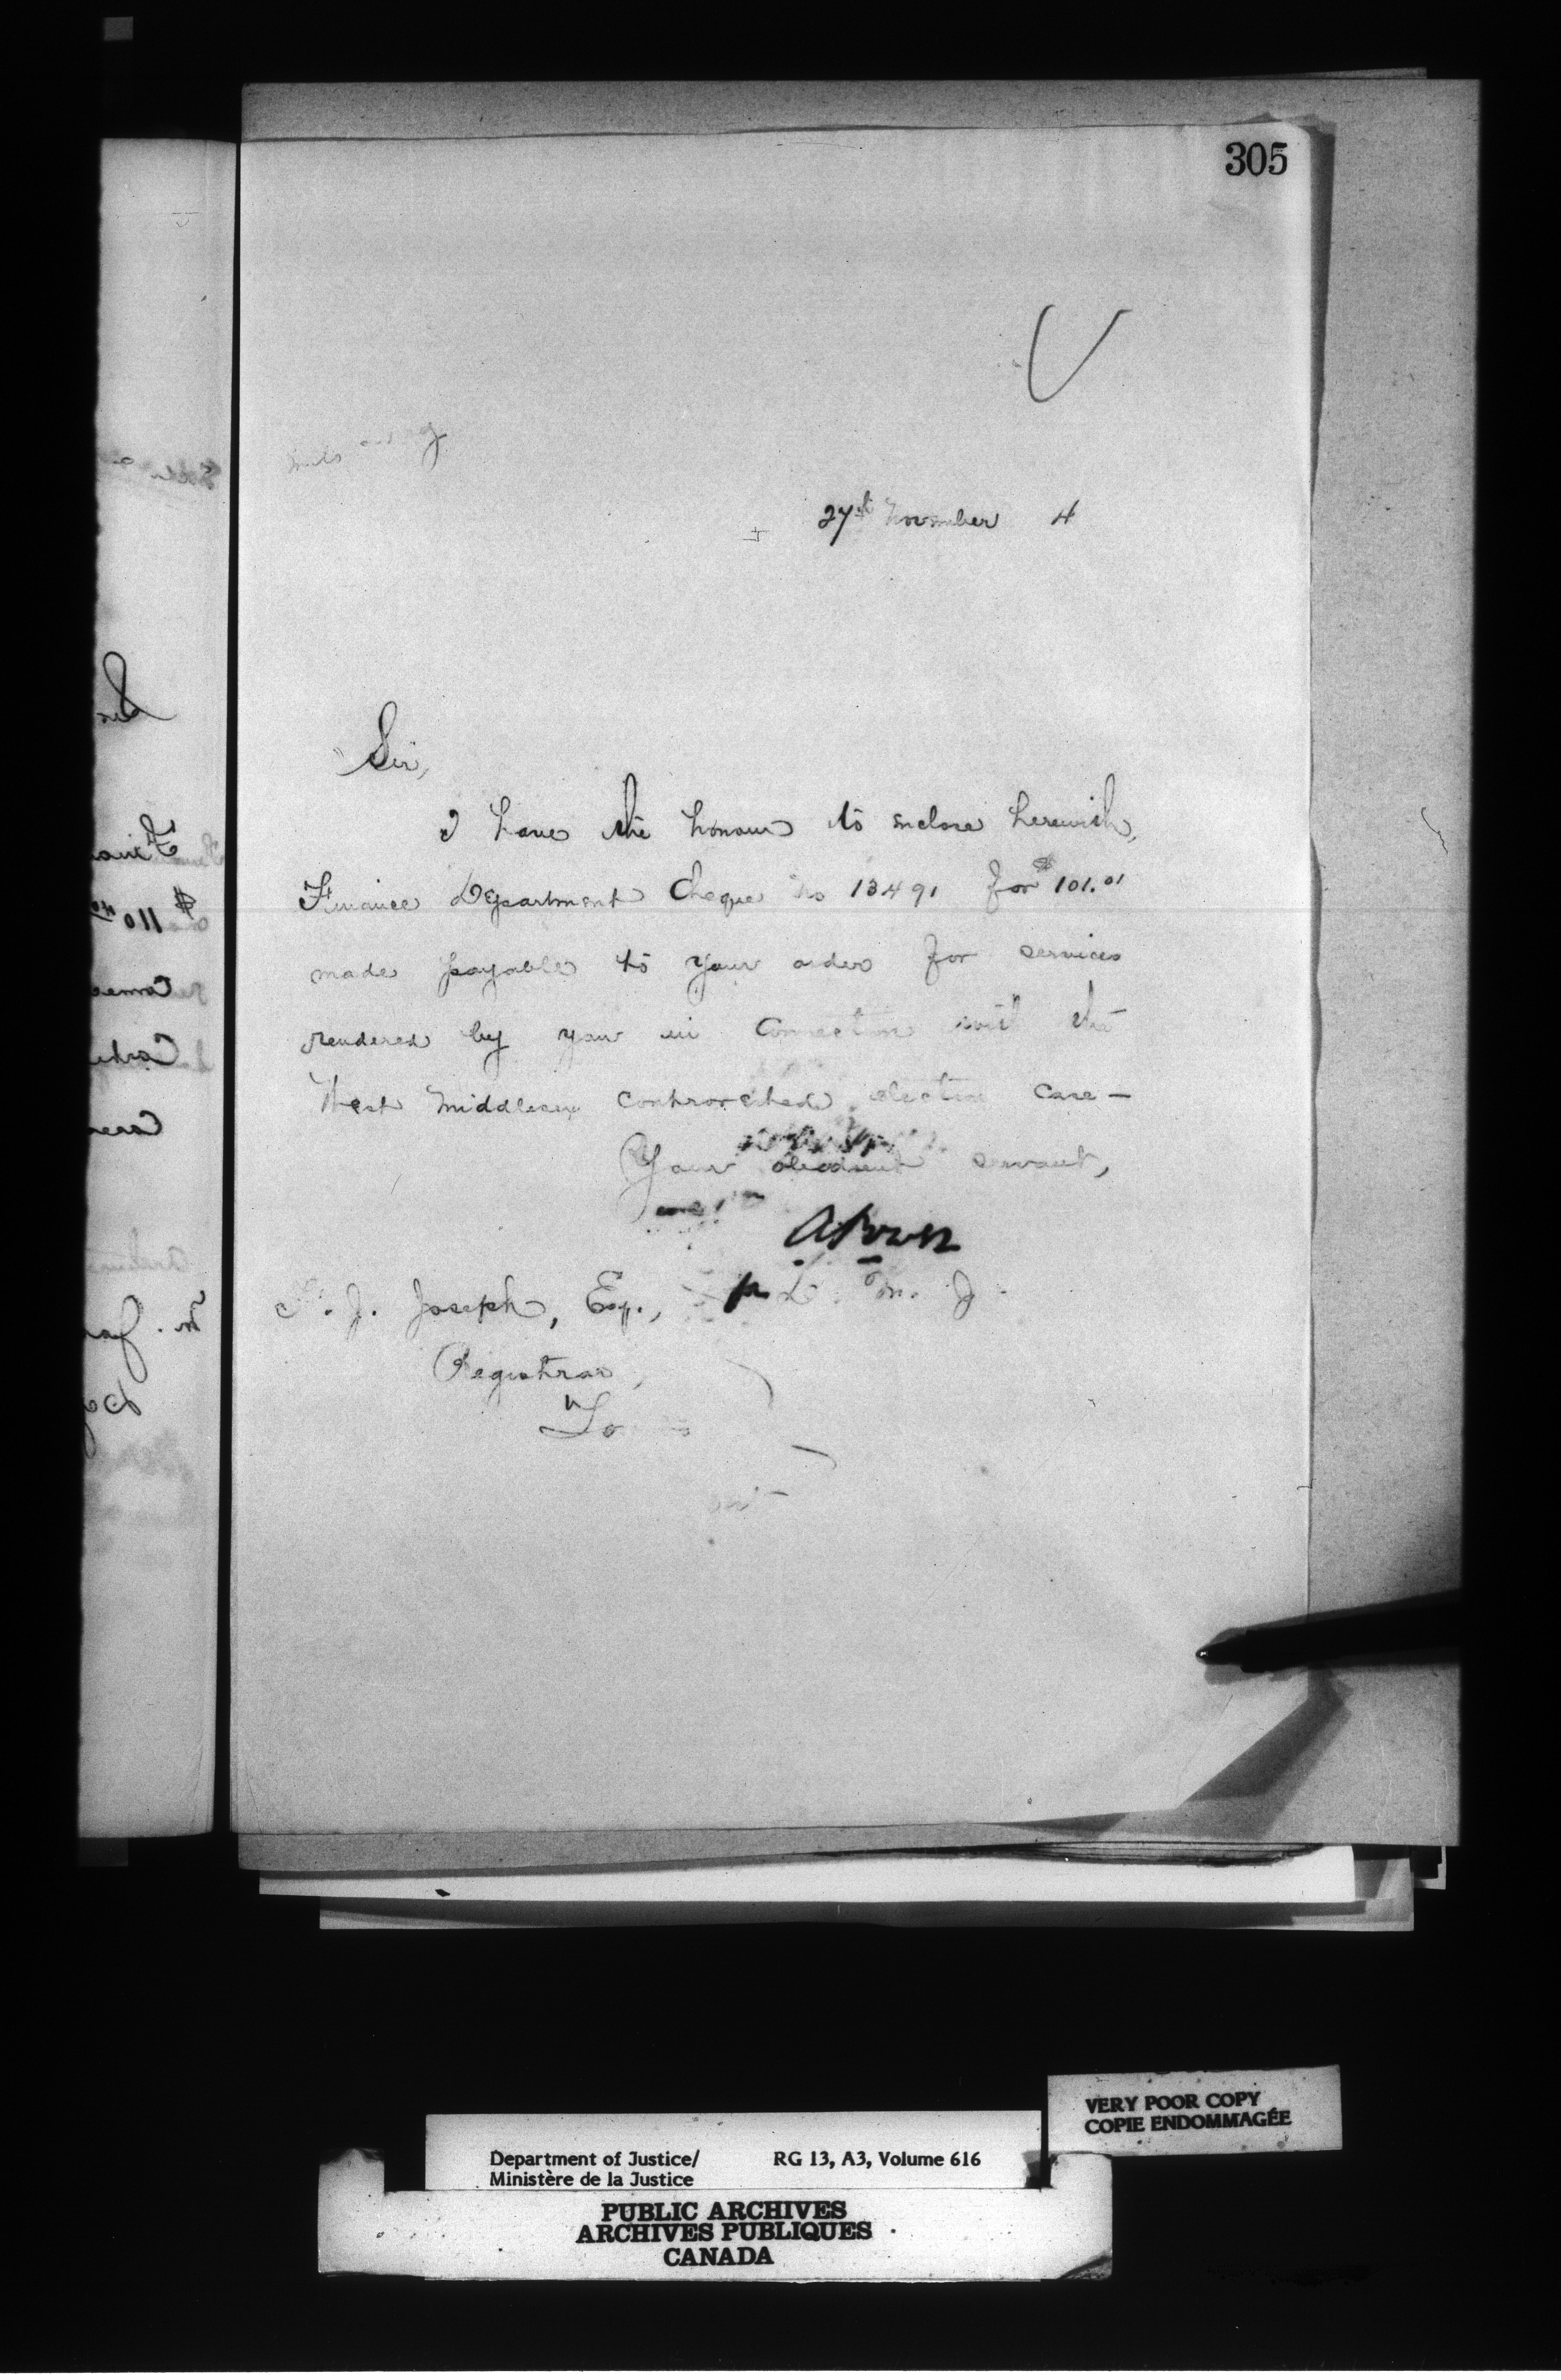 305
27th November 4
Sir,
I have the honour to enclose herewith,
Finance Department Cheque No 13491 for $101.01
made payable to your order for services
rendered by you in Connection with the
West Middlesex controverted election case —
Your obedient servant,
A Power
p. D. M. J.
J. Joseph, Esq.,
Registrar,
VERY POOR COPY
COPIE ENDOMMAGÉE
Department of Justice/ RG 13, A3, Volume 616
Ministère de la Justice
PUBLIC ARCHIVES
ARCHIVES PUBLIQUES
CANADA